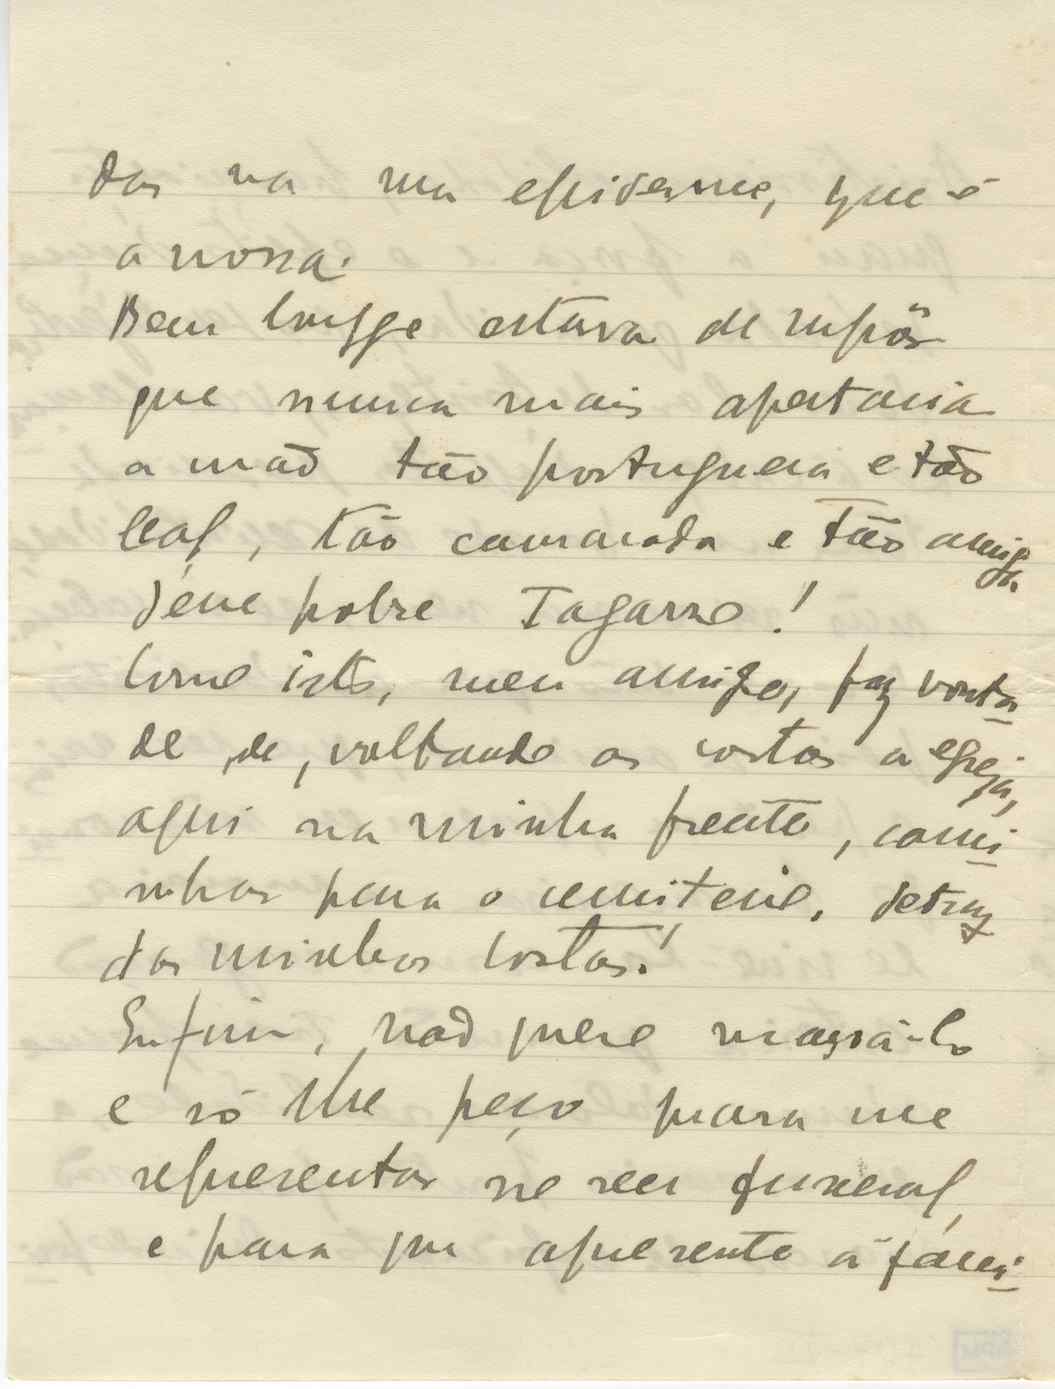 das na sua epiderme, que é
a nossa.
Bem longe estava de supôr
que nunca mais apertaria
a mão tão portuguesa e tão
leal, tão camarada e tão amiga
dêsse pobre Tagarro!
Como isto, meu amigo, faz vonta-
de de, voltando as costas a egreja,
aqui na minha frente, cami-
nhar para o cemiterio, detraz
das minhas costas!
Enfim, não quero massá-lo
e só lhe peço para me
representar no seu funeral,
e para que apresente á fami-